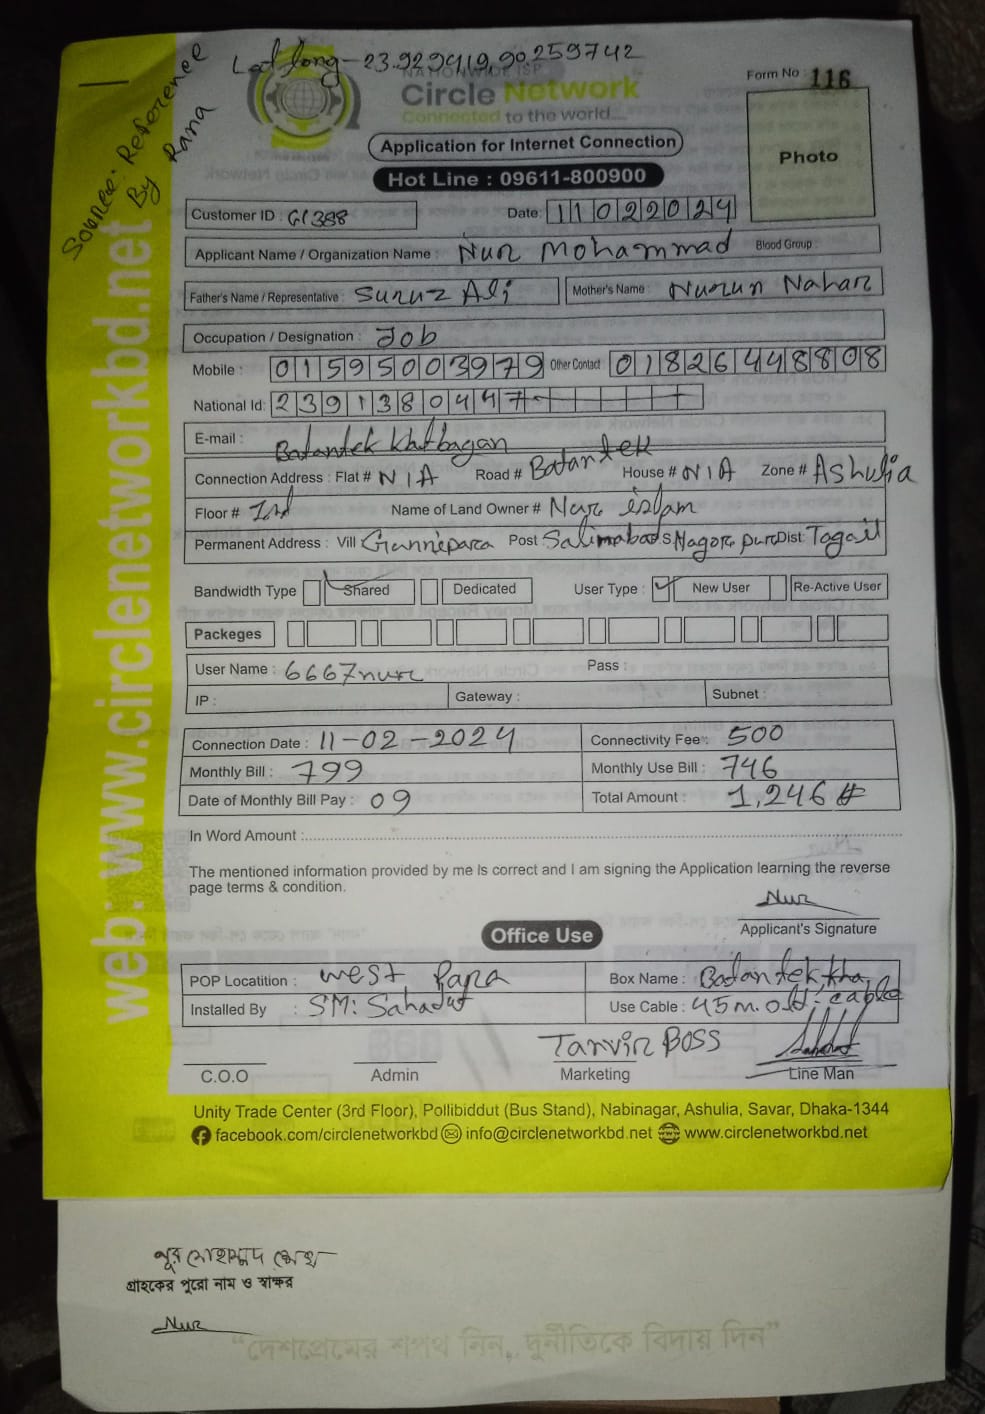 Lat long - 23.929419, 90.259742
Source: Reference
By Rana
NATIONWIDE ISP
Circle Network
Connected to the world....
Form No : 116
Photo
Application for Internet Connection
Hot Line : 09611-800900
Customer ID : G1388
Date: 11022024
Applicant Name / Organization Name : Nur Mohammad Blood Group :
Father's Name / Representative : Suruz Ali Mother's Name : Nurun Nahar
Occupation / Designation : Job
Mobile : 01595003979 Other Contact 01826448808
National Id: 2391380447
E-mail :
Batantek Khatbagan
Connection Address : Flat # N/A Road # Batantek House # N/A Zone # Ashulia
Floor # Name of Land Owner # Nur islam
Permanent Address : Vill Gunnipara Post Salimabad Nagorpur Dist: Togail
Bandwidth Type Shared Dedicated User Type : New User Re-Active User
Packeges
User Name : 6667nur Pass :
IP : Gateway : Subnet :
Connection Date : 11-02-2024 Connectivity Fee : 500
Monthly Bill : 799 Monthly Use Bill : 746
Date of Monthly Bill Pay : 09 Total Amount : 1,246 #
In Word Amount :
The mentioned information provided by me Is correct and I am signing the Application learning the reverse
page terms & condition.
Nur
Applicant's Signature
Office Use
POP Locatition : west Para Box Name : Batantek kha
Installed By : SM: Sahadut Use Cable : 45m. old cable
Tanvir BOSS
C.O.O Admin Marketing Line Man
Unity Trade Center (3rd Floor), Pollibiddut (Bus Stand), Nabinagar, Ashulia, Savar, Dhaka-1344
facebook.com/circlenetworkbd info@circlenetworkbd.net www.circlenetworkbd.net
web: www.circlenetworkbd.net
নুর মোহাম্মদ
গ্রাহকের পুরো নাম ও স্বাক্ষর
Nur
“দেশপ্রেমের শপথ নিন, দুর্নীতিকে বিদায় দিন”